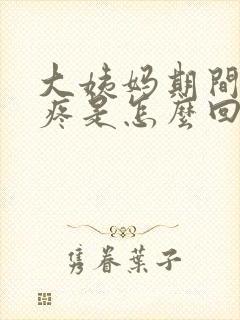 大姨妈期間
疼是怎麼回
隽眷葉子